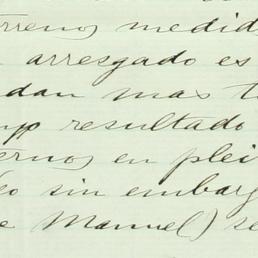 terrenos medid
arresgado es
dan mas t
resultado
ernos en plei
o sin embarg
e Manuel) se